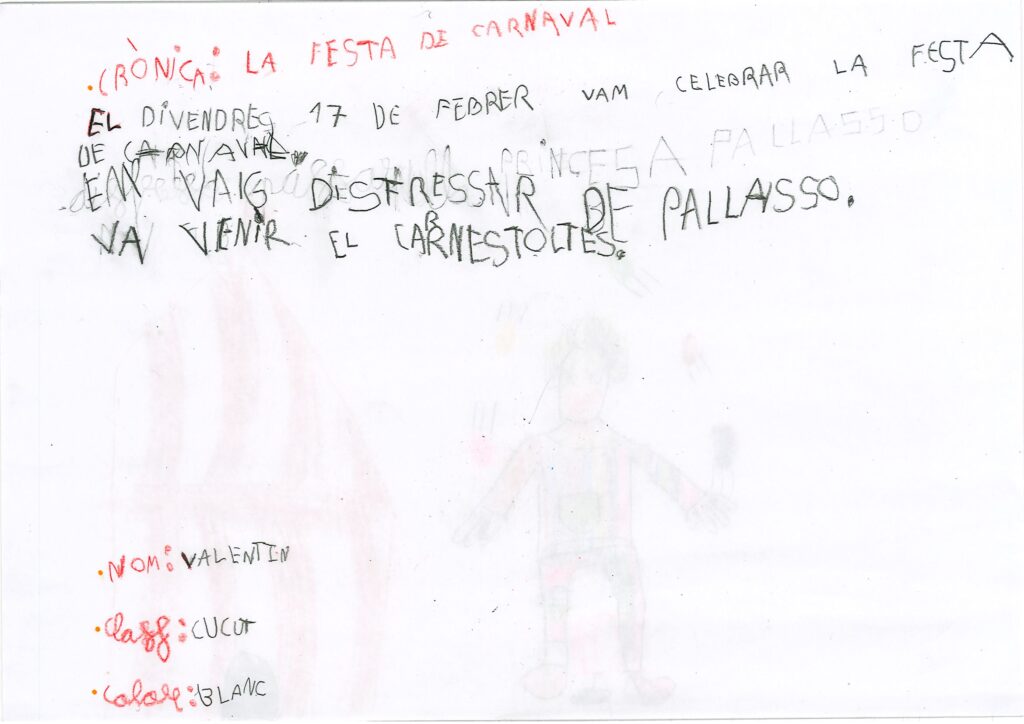 CRÒNICA: LA FESTA DE CARNAVAL
EL DIVENDRES 17 DE FEBRER VAM CELEBRAR LA FESTA
DE CARNAVAL.
PRINCESA PALLASSO
EM VAIG DISFRESSAR DE PALLASSO.
VA VENIR EL CARNESTOLTES.
NOM: VALENTIN
CUCUT
BLANC